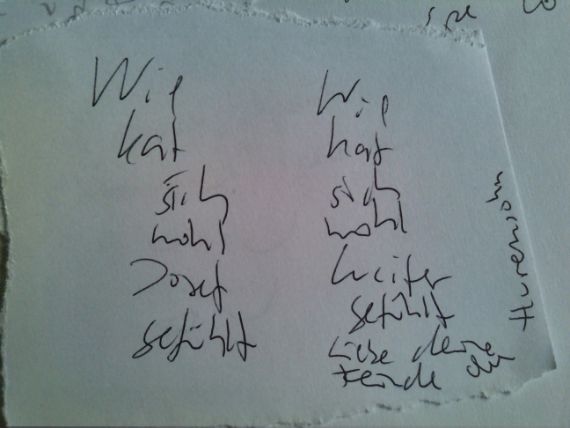 Wie
hat
sich
wohl
Josef
gefühlt
Wie
hat
sich
wohl
Luzifer
gefühlt
Liebe deine
Feinde du
Hurensohn